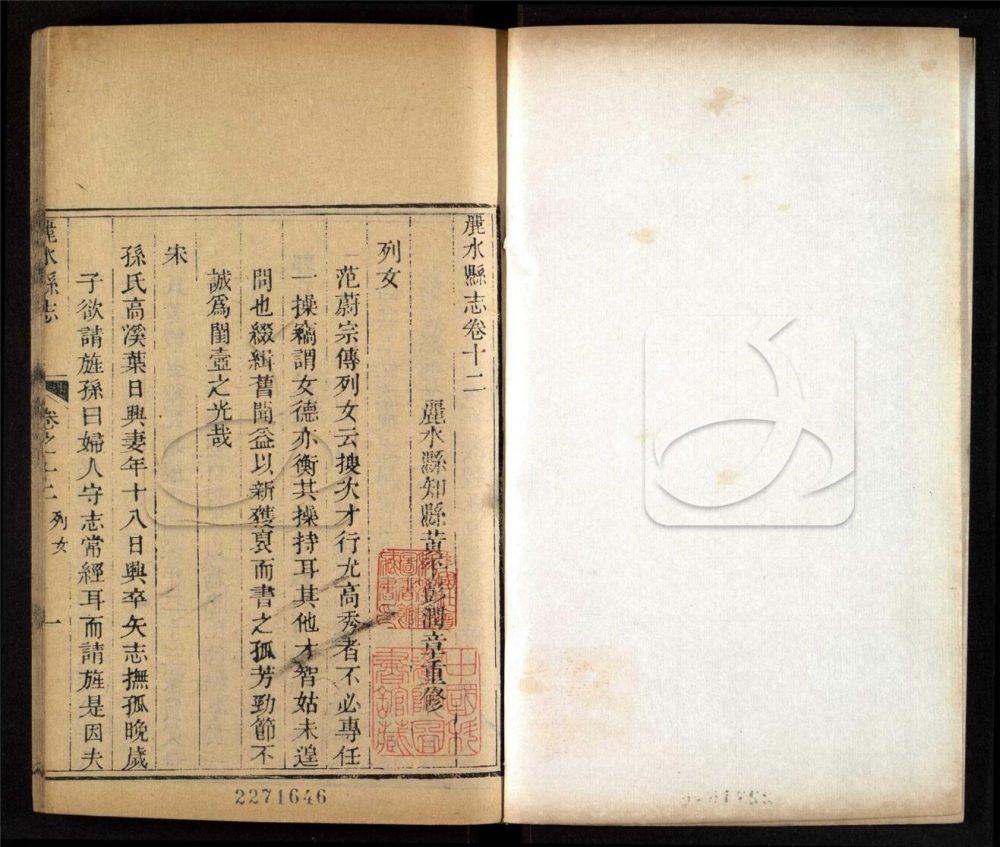 麗水縣志卷十二
麗水縣知縣黃平彭潤章重修
列女
范蔚宗傳列女云搜次才行尤高秀者不必專任
一操竊謂女德亦衡其操持耳其他才智姑未遑
問也綴緝舊聞益以新獲裒而書之孤芳勁節不
誠爲閨壼之光哉
宋
孫氏高溪葉日興妻年十八日興卒矢志撫孤晚歲
子欲請旌孫曰婦人守志常經耳而請旌是因夫
麗水縣志
卷之十二 列女
一
2271646